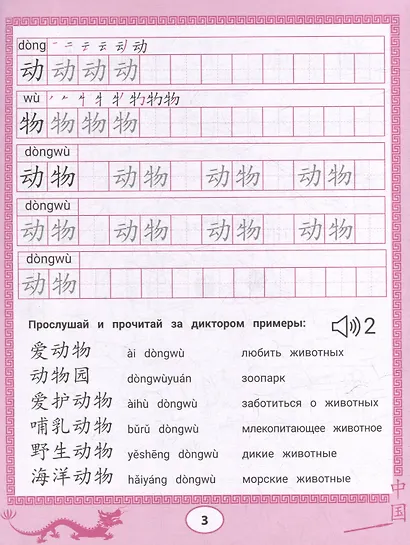 dòng 一 二 テ 云 动 动
动 动 动 动
wù 物 物 物
物 物 物 物
dòngwù
动物 动物 动物 动物
dòngwù
动物 动物 动物 动物
dòngwù
动物
Прослушай и прочитай за диктором примеры: 2
爱动物 ài dòngwù любить животных
动物园 dòngwùyuán зоопарк
爱护动物 àihù dòngwù заботиться о животных
哺乳动物 bǔrǔ dòngwù млекопитающее животное
野生动物 yěshēng dòngwù дикие животные
海洋动物 hǎiyáng dòngwù морские животные
中国
3